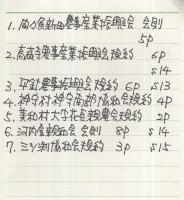 1. 岡の原新田農事産業振興会 会則
5p
2. 高森農事産業振興会規約 6p
S14
3. 平針農事振興会規約 6p S13
4. 神守村神守南部協和会規約 4p
5. 美和村大字花長親農会規約 2p
6. 河合産親社会 会則 8p S14
7. 三ツ渕協和会規約 3p S15